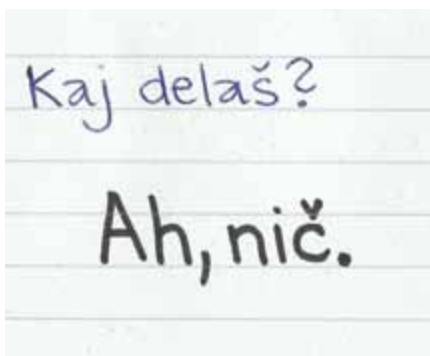 Kaj delaš?
Ah, nič.